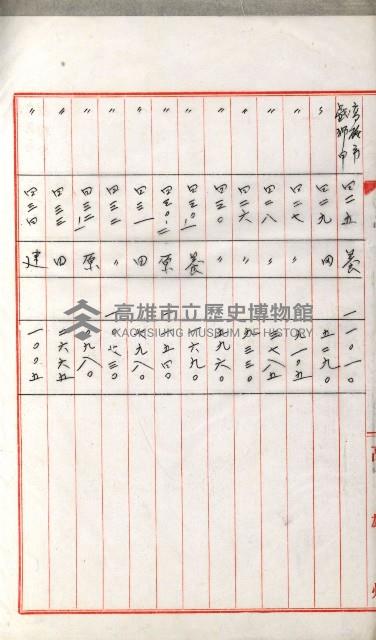 高雄市戲獅甲 四二五 養 一一〇一〇
〃 四二九 田 五二九〇
〃 四二七 〃 九一〇五
〃 四二八 〃 三七八五
〃 四二六 〃 五三三〇
〃 四三〇 〃 五九六〇
〃 四三〇ノ一 養 六九〇
〃 四三〇ノ二 原 五四〇
〃 四三一 田 七九八〇
〃 四三二 〃
〃 四三二ノ一 原 九八〇
〃 四三三 田 二六六五
〃 四三四 建 一〇〇五
高雄市立歷史博物館
KAOHSIUNG MUSEUM OF HISTORY